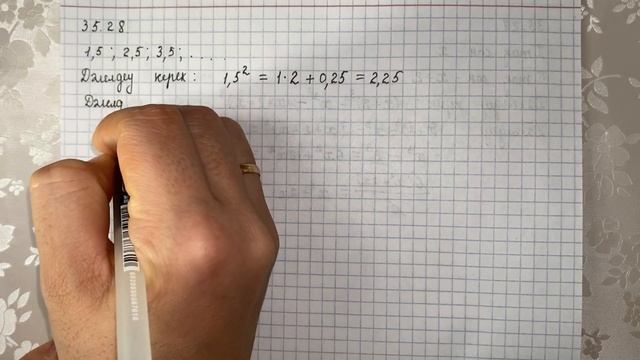 35.28
1,5 ; 2,5 ; 3,5 ; . . . . .
Дәлелдеу керек : 1,5² = 1·2 + 0,25 = 2,25
Дәлел